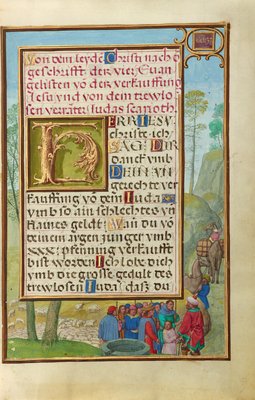 Von dem leyde Christi nach ö
geschrifft der vier Euan
gelisten vō der verkauffung
Iesu vnd von dem trewlo
sen verräter Iudas scarioth.
HERR IESV
christe ich
SAG DIR
danck vmb
DEIN VN
gerechte ver
kauffung vō dem Iuda
vmb so ain schlechtes vn
klaines geldt: Wan du vō
deinem argen junger vmb
xxx: pfenning verkaufft
bist worden Ich lobe dich
vmb die grosse gedult des
trewlosen Iuda: dasz du